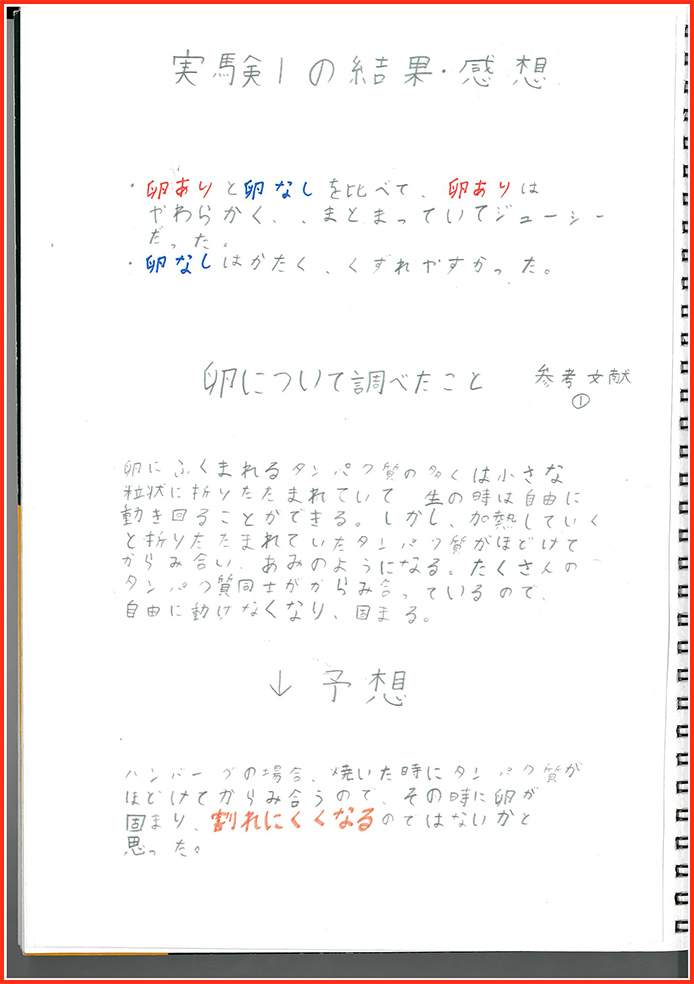 実験1の結果・感想
・卵ありと卵なしを比べて、卵ありは
やわらかく、、まとまっていてジューシー
だった。
・卵なしはかたく、くずれやすかった。
卵について調べたこと 参考文献
①
卵にふくまれるタンパク質の多くは小さな
粒状に折りたたまれていて 生の時は自由に
動き回ることができる。しかし、加熱していく
と折りたたまれていたタンパク質がほどけて
からみ合い、あみのようになる。たくさんの
タンパク質同士がからみ合っているので、
自由に動けなくなり、固まる。
↓予想
ハンバーグの場合、焼いた時にタンパク質が
ほどけてからみ合うので、その時に卵が
固まり、割れにくくなるのではないかと
思った。